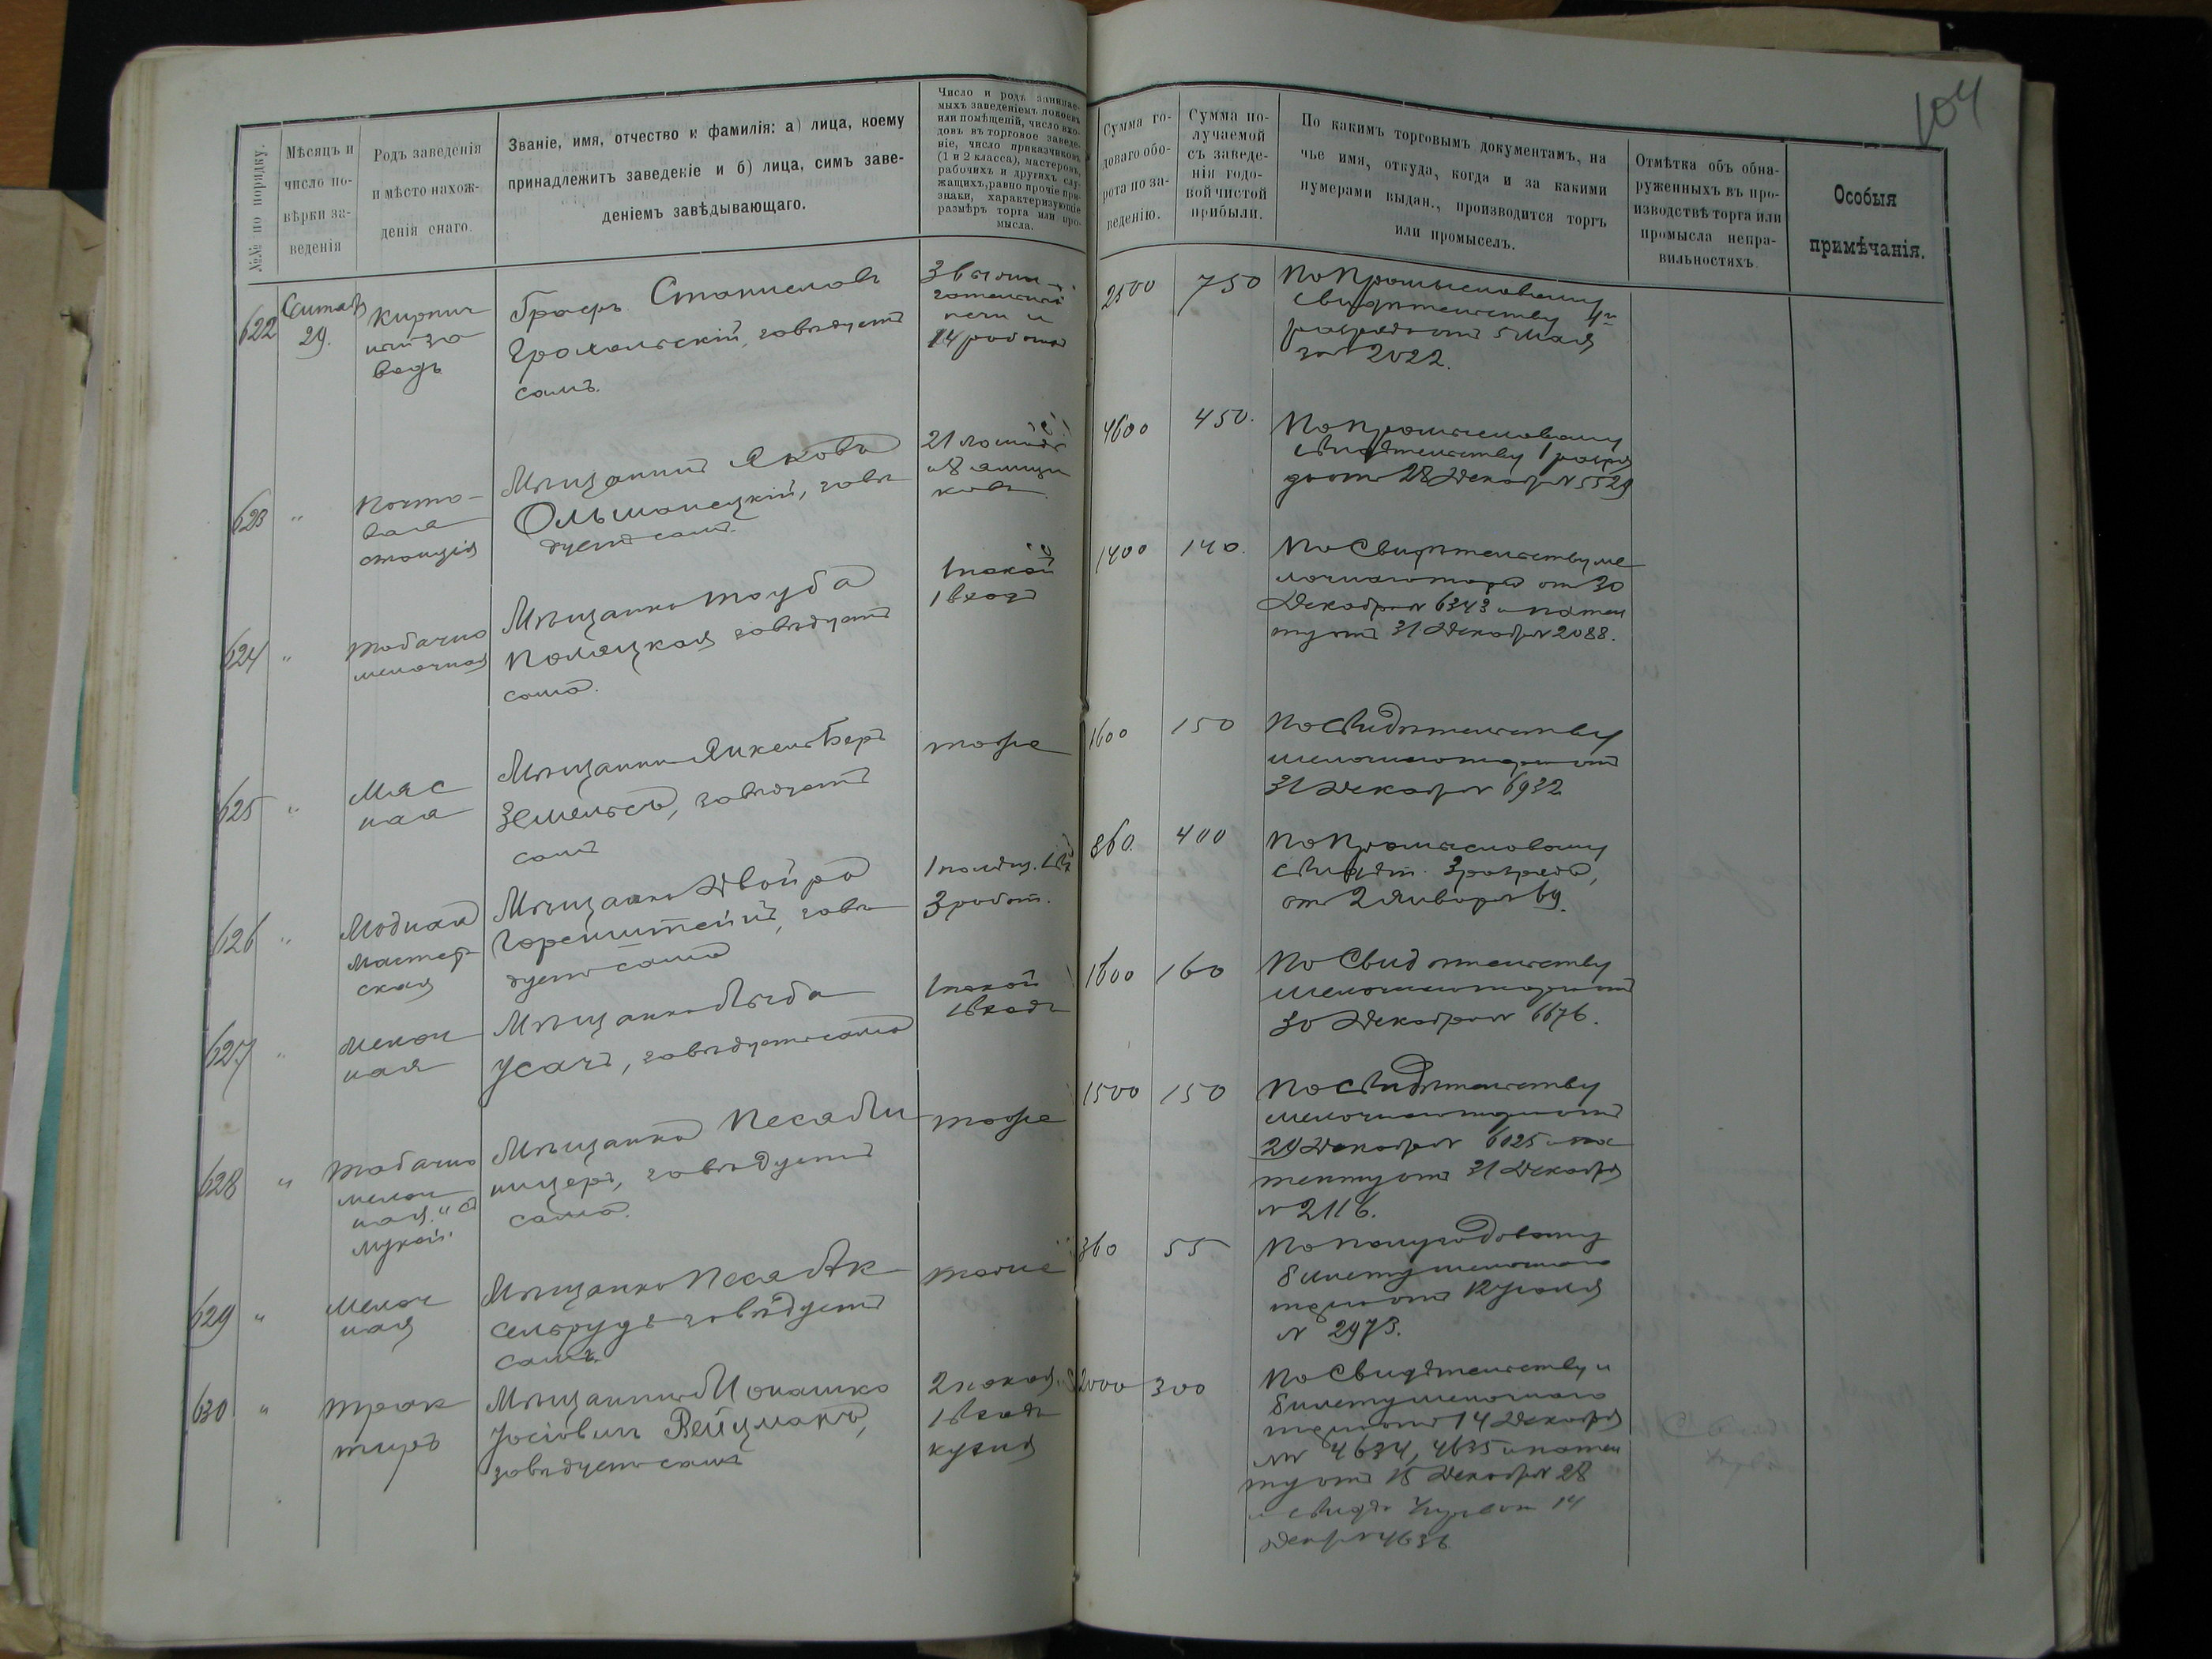 104
№№ по порядку.
Мѣсяцъ и
число по-
вѣрки за-
веденія
Родъ заведенія
и мѣсто нахож-
денія онаго.
Званіе, имя, отчество и фамилія: а) лица, коему
принадлежитъ заведеніе и б) лица, симъ заве-
деніемъ завѣдывающаго.
Число и родъ занимае-
мыхъ заведеніемъ покоевъ
или помѣщеній, число вхо-
довъ въ торговое заведе-
ніе, число приказчиковъ
(1 и 2 класса), мастеровъ,
рабочихъ и другихъ слу-
жащихъ, равно прочіе при-
знаки, характеризующіе
размѣръ торга или про-
мысла.
Сумма го-
доваго обо-
рота по за-
веденію.
Сумма по-
лучаемой
съ заведе-
нія годо-
вой чистой
прибыли.
По какимъ торговымъ документамъ, на
чье имя, откуда, когда и за какими
нумерами выдан., производится торгъ
или промыселъ.
Отмѣтка объ обна-
руженныхъ въ про-
изводствѣ торга или
промысла непра-
вильностяхъ.
Особыя
примѣчанія.
622
29.
Кирпич
ный за
водъ
Графъ Станиславъ
Грохольскій, завѣдуетъ
самъ.
печи и
14 работ
2500
750
По Промысловому
свидѣтельству
разряда отъ 5 Мая
за № 2022.
623
"
Почто-
вая
станція
Мѣщанинъ Яковъ
Ольшанецкій, завѣ
дуетъ самъ.
21 лошадь
и 8 ямщи
ковъ
4600
450.
По Промысловому
свидѣтельству 1 разря
да отъ 28 Декабря № 5529
624
"
Табачно
мелочная
Мѣщанка Тауба
Полоцкая завѣдуетъ
сама.
1 покой
1 входъ
1400
140.
По Свидѣтельству ме
лочнаго торга отъ 30
Декабря № 6343 и патен
ту отъ 31 Декабря № 2088.
625
"
Мяс
ная
Мѣщанинъ Янкель Беръ
Земельсъ, завѣдуетъ
самъ
тоже
1600
150
По Свидѣтельству
мелочнаго торга отъ
31 Декабря № 6932
626
"
Модная
мастер
ская
Мѣщанка Двойра
Горенштейнъ, завѣ
дуетъ сама
3 работ.
860.
400
По Промысловому
свидѣт. 3 разряда,
отъ 2 Января № 69.
627
"
Мелоч
ная
Мѣщанка Лыба
Усачъ, завѣдуетъ сама
1 покой
1 входъ
1600
160
По Свидѣтельству
мелочнаго торга отъ
30 Декабря № 6676.
628
"
Табачно
мелоч
ная и съ
мукой.
Мѣщанка Песя Ли
ницеръ, завѣдуетъ
сама.
тоже
1500
150
По Свидѣтельству
мелочнаго торга отъ
29 Декабря № 6025 и па
тенту отъ 31 Декабря
№ 2116.
629
"
Мелоч
ная
Мѣщанка Песя Ак
сельрудъ завѣдуетъ
сама.
тоже
360
55
По полугодовому
билету мелочнаго
торга отъ 12 Іюля
№ 2973.
630
"
Трак
тиръ
Мѣщанинъ Мошко
Іосіовичъ Вейцманъ,
завѣдуетъ самъ
2 покоя
1 входъ
кухня
2000
300
По Свидѣтельству и
билету мелочнаго
торга отъ 14 Декабря
№№ 4634, 4635 и патен
ту отъ 15 Декабря № 28
14
Декабр № 4636